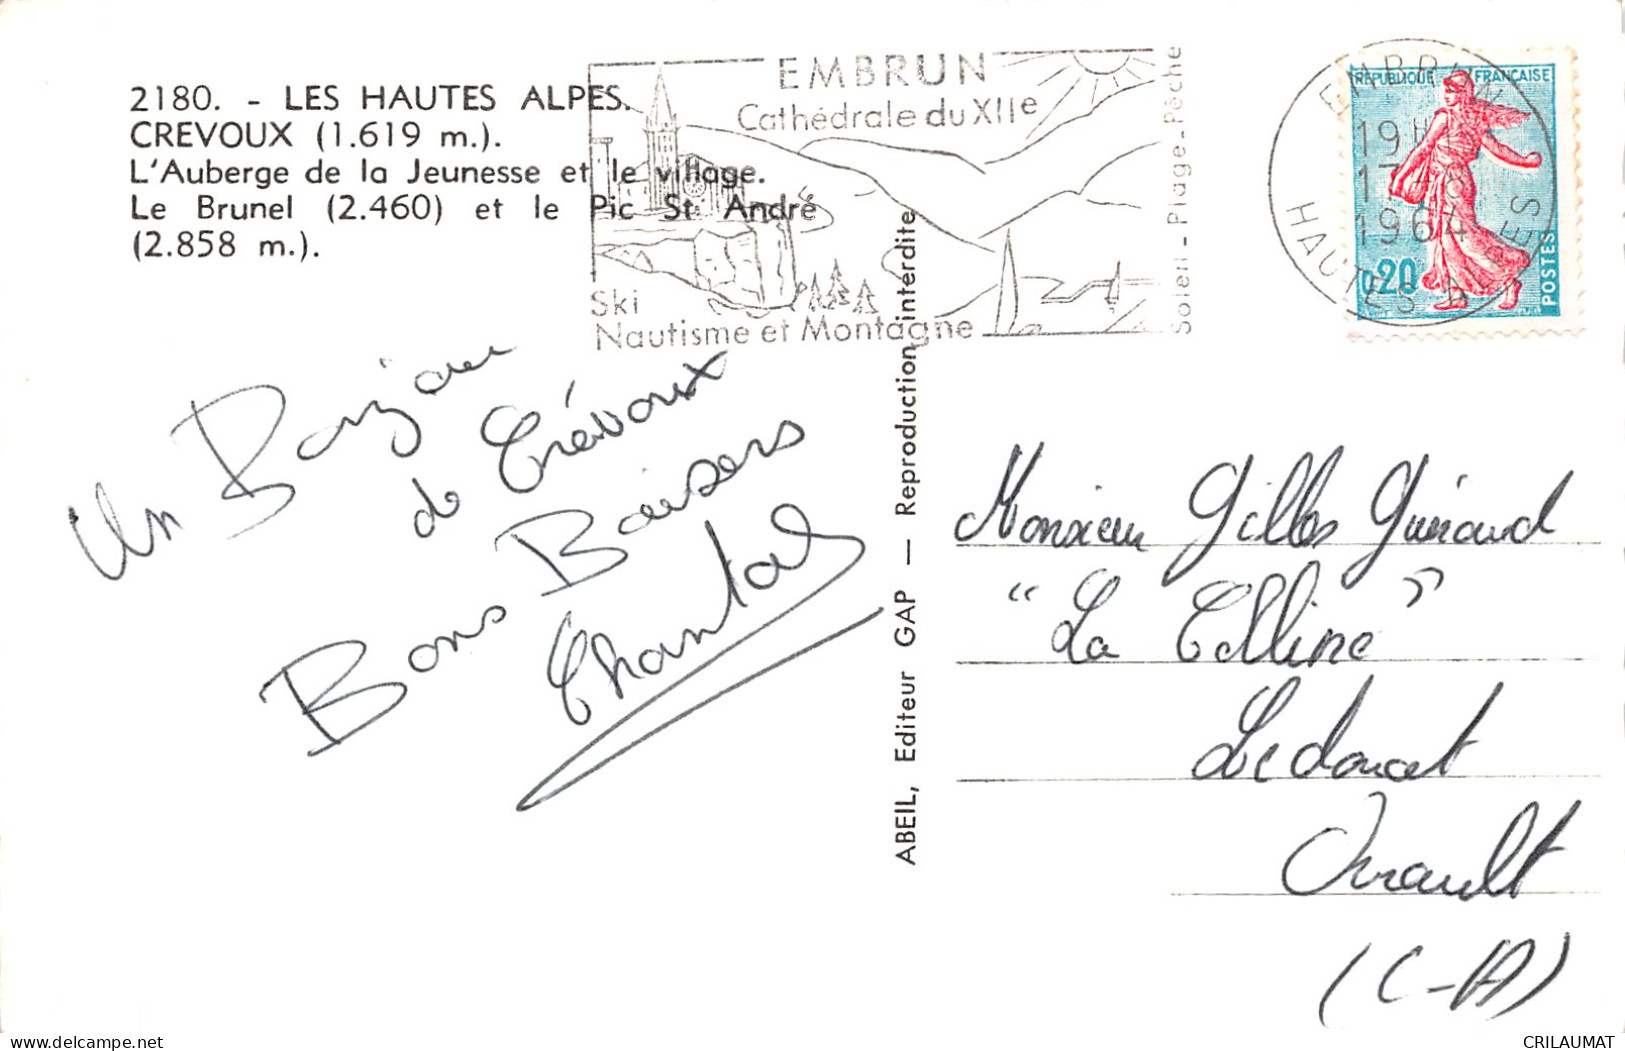 2180. - LES HAUTES ALPES.
CREVOUX (1.619 m.).
L'Auberge de la Jeunesse et le village.
Le Brunel (2.460) et le Pic St André
(2.858 m.).
EMBRUN
Cathédrale du XIIe
Ski
Nautisme et Montagne
Soleil - Plage - Pêche
EMBRUN
19 H
17
1964
HAUTES ALPES
REPUBLIQUE FRANÇAISE
0,20
POSTES
Un Bonjour
de Crévoux
Bons Baisers
Chantal
ABEIL, Editeur GAP — Reproduction interdite
Monsieur Gilles Guéraud
"La Colline"
(C-M)
CRILAUMAT